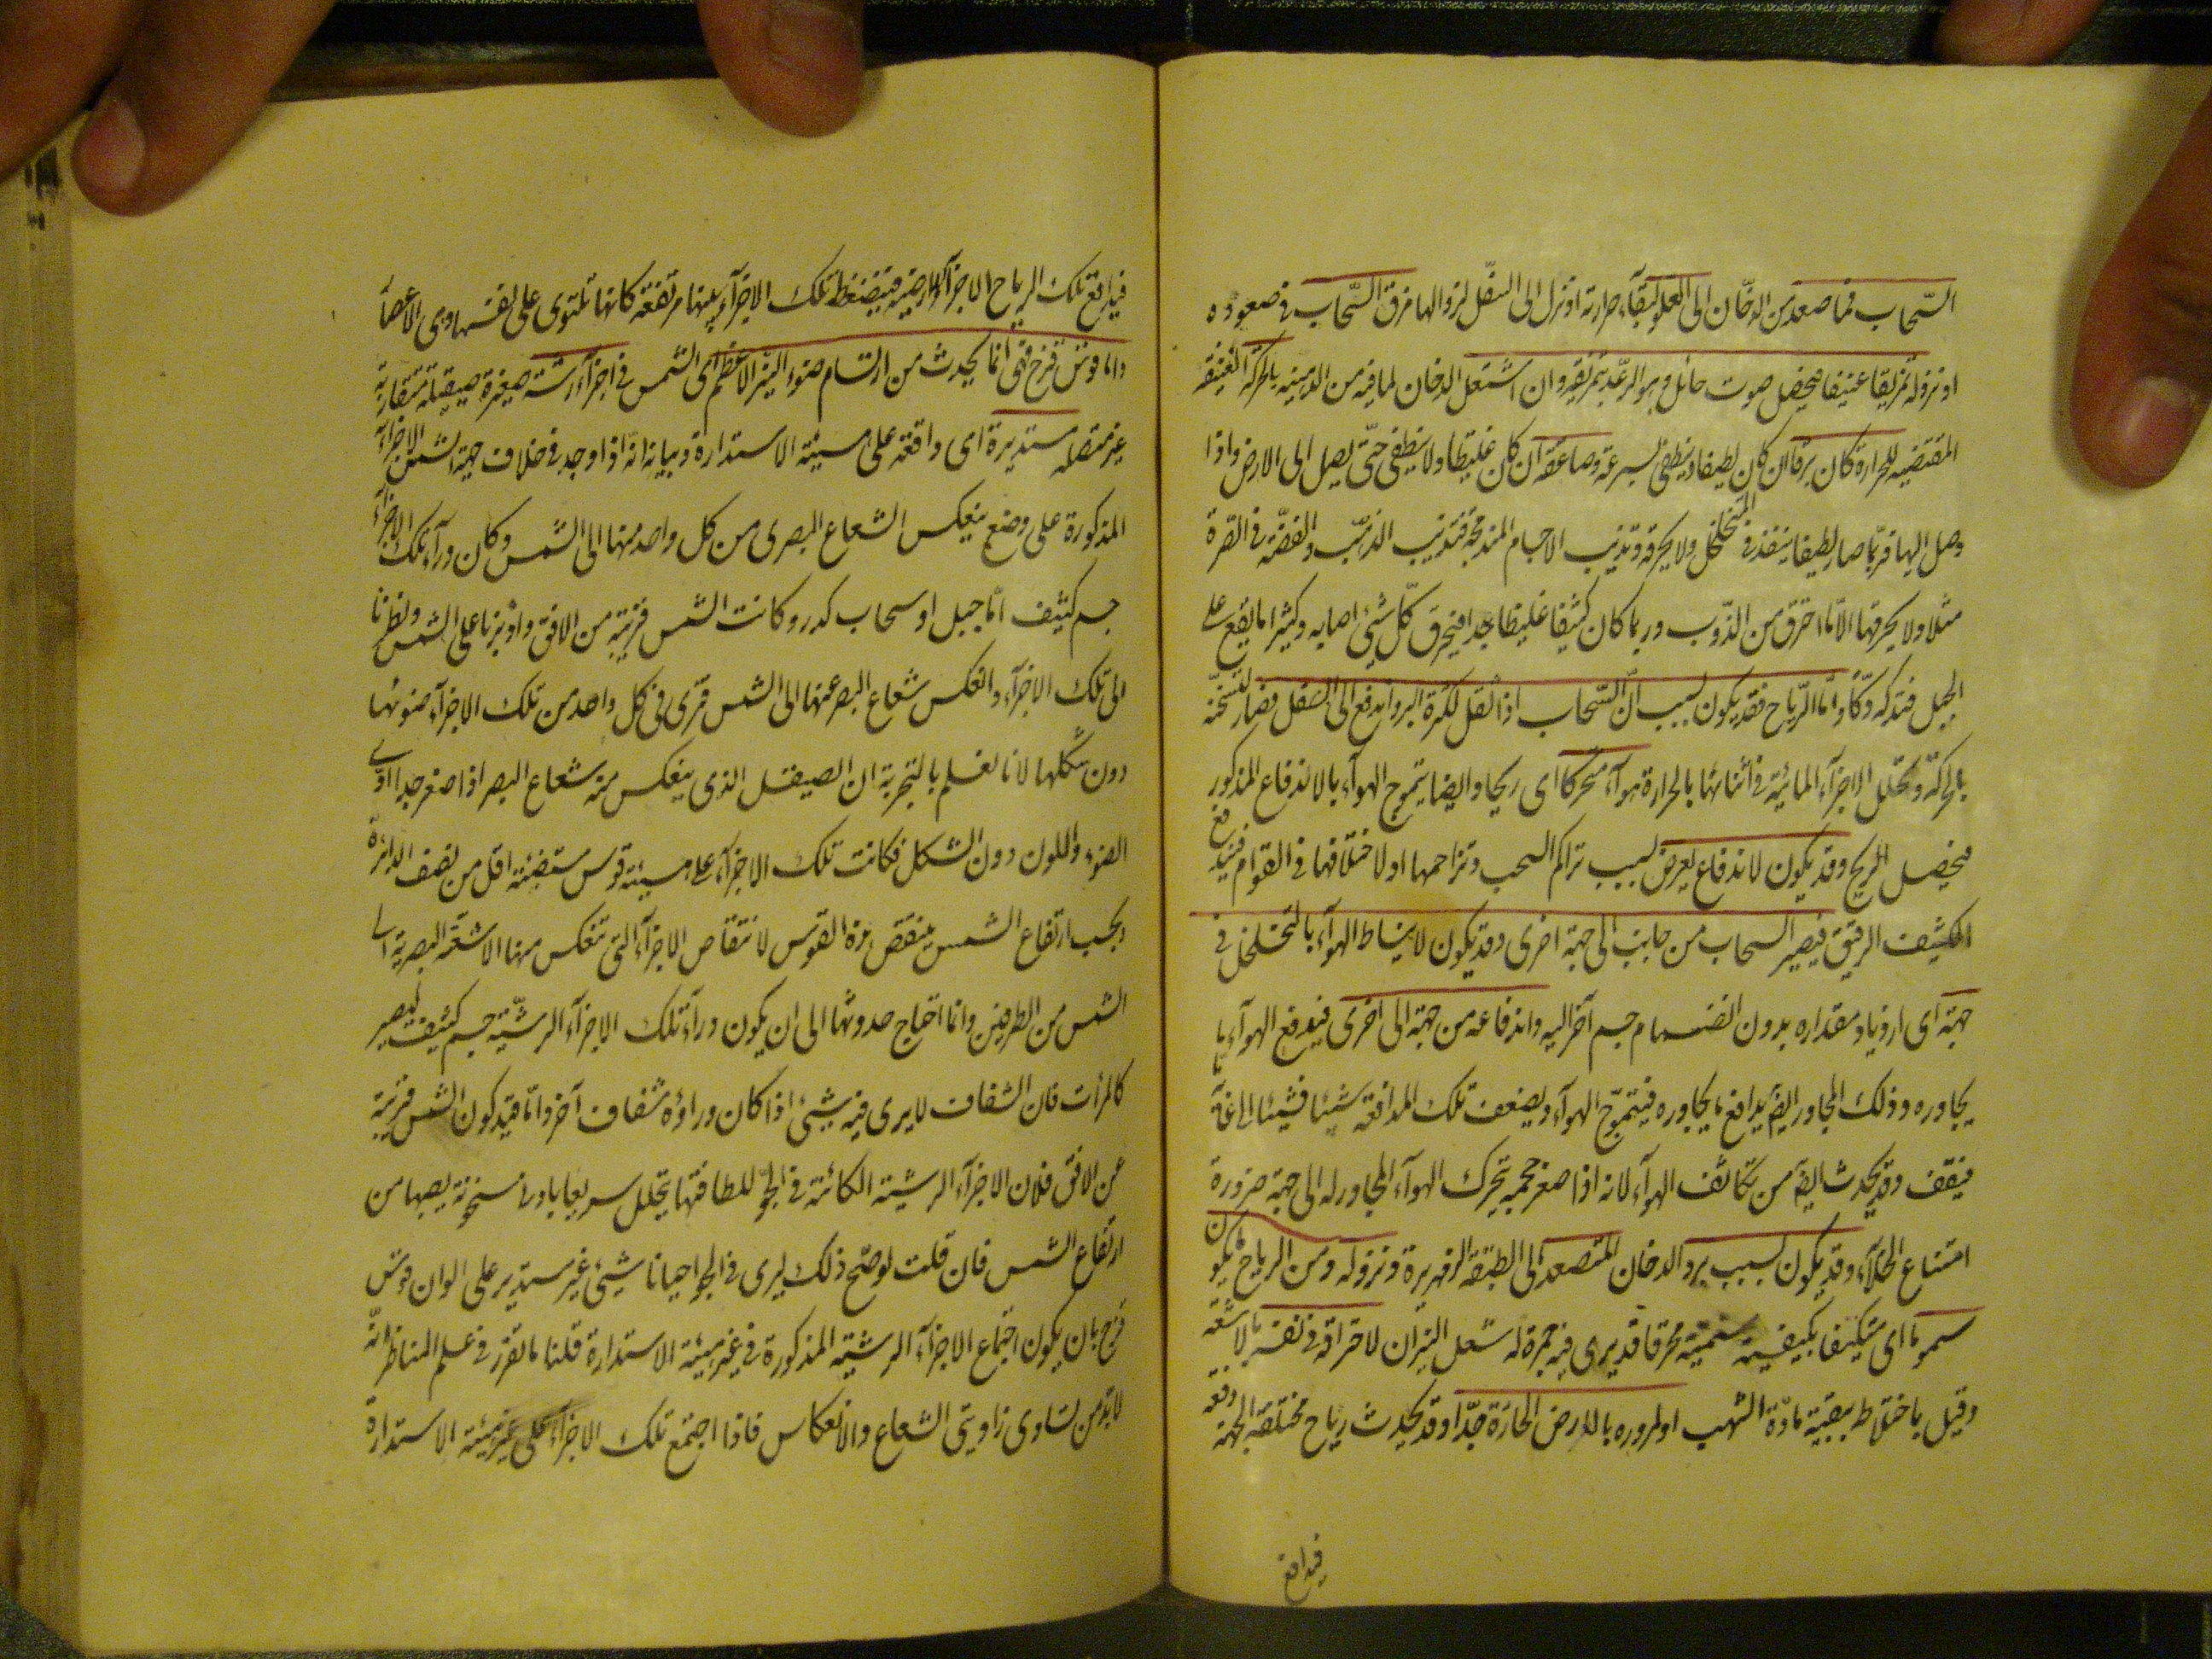 السّحاب فما صعد من الدخّان الى العلو لبقآء حرارته او نزل الى السّفل لزوالها مزق السّحاب فى صعوده
او نزوله تمزيقا عنيفا فيحصل صوت هائل وهو الرعد بتمزيقه وان اشتعل الدخان لما فيه من الدهنية بالحركة العنيفة
المقتضيه للحرارة كان برقا ان كان لطيفا وينطفى بسرعة وصاعقة ان كان غليظا ولا ينطفى حتّى يصل الى الارض واذا
وصل اليها فربّما صار لطيفا ينفذ فى المتخلخل ولا يحرقه ويذيب الاجسام المندمجة فتذيب الذهب والفضّة فى الصّرة
مثلا ولا يحرقها الّا ما احترق من الذّوب وربما كان كثيفا غليظا جدا فيحرق كلّ شئ اصابه وكثيرا ما يقع على
الجبل فتدكه دكّا وامّا الرّياح فقد يكون بسبب انّ السّحاب اذا ثقل لكثرة البرد اندفع الى السّفل فصار لتسخّنه
بالحركة وتحلّل الاجزآء المائيّة فى اثنائها بالحرارة هوآء متحركا اى ريحا وايضا يتموج الهوآء بالاندفاع المذكور
فيحصل الريح وقد يكون لاندفاع يعرض بسبب تراكم السحب وتزاحمها او لاختلافها فى القوام فيندفع
الكثيف الرقيق فيصير السحاب من جانب الى جهة اخرى وقد يكون لانبساط الهوآء بالتخلخل فى
جهة اى ازدياد مقداره بدون انضمام جسم آخر اليه واندفاعه من جهة الى اخرى فيدفع الهوآء ما
يجاوره وذلك المجاور ايضا يدافع ما يجاوره فيتموّج الهوآء ويضعف تلك المدافعة شيئا فشيئا الى غاية
فيقف وقد يحدث ايضا من تكاثف الهوآء لانه اذا صغر حجمه يتحرك الهوآء المجاور له الى جهة ضرورة
امتناع الخلآء وقد يكون بسبب برد الدخان المتصعد الى الطبقة الزمهريرة ونزوله ومن الرياح ما يكون
سموما اى متكيفا بكيفيته سمية محرقا قد يرى فيه حمرة له شعل النيران لاحتراقه فى نفسه بالاشعّة
وقيل باختلاط ببقيّة مادّة الشهب او لمروره بالارض الحارّة جدّا وقد يحدث رياح مختلفة الجهة دفعة
فيدافع
فيدافع تلك الرياح الاجزآء الارضية فينضغط تلك الاجزآء بينها مرتفعة كانها تلتوى على نفسها وهى الاعصار
واما قوس قزح فهى انما يحدث من ارتسام ضوء النيّر الاعظم اى الشمس فى اجزآء رشية صغيرة صيقلة متقاربة
غير متصلة مستديرة اى واقعة على هيئة الاستدارة وبيانه انّه اذا وجد فى خلاف جهة الشمس الاجزاء
المذكورة على وضع ينعكس الشعاع البصرى من كل واحد منها الى الشمس وكان ورآء تلك الاجزآء
جسم كثيف امّا جبل او سحاب كدر وكانت الشمس قريبة من الافق وادبرنا على الشمس ونظرنا
الى تلك الاجزآء وانعكس شعاع البصر عنها الى الشمس فترى فى كل واحد من تلك الاجزآء ضوئها
دون شكلها لانا نعلم بالتجربة ان الصيقل الذى ينعكس منه شعاع البصر اذا صغر جدا ادّى
الضوء واللون دون الشكل فكانت تلك الاجزآء على هيئة قوس مستضيئة اقل من نصف الدائرة
وبحسب ارتفاع الشمس ينقص هذه القوس لانتقاص الاجزآء التى تنعكس منها الاشعّة البصرية الى
الشمس من الطرفين وانما احتاج حدوثها الى ان يكون ورآء تلك الاجزآء الرشيّة جسم كثيف ليصير
كالمرأت فان الشفاف لا يرى فيه شئ اذا كان وراؤه شفاف آخر وانّما قيد كون الشمس قريبة
عن الافق فلان الاجزآء الرشيّة الكائنة فى الجوّ للطافتها يتحلل سريعا بادنى سخونة يصيبها من
ارتفاع الشمس فان قلت لو صحّ ذلك ليرى فى الجو احيانا شئ غير مستدير على الوان قوس
قزح بان يكون اجتماع الاجزآء الرشيّة المذكورة فى غير هيئة الاستدارة قلنا ما تقرّر فى علم المناظر انّه
لا بدّ من تساوى زاويتى الشعاع والانعكاس فاذا اجتمع تلك الاجزآء على غير هيئة الاستدارة